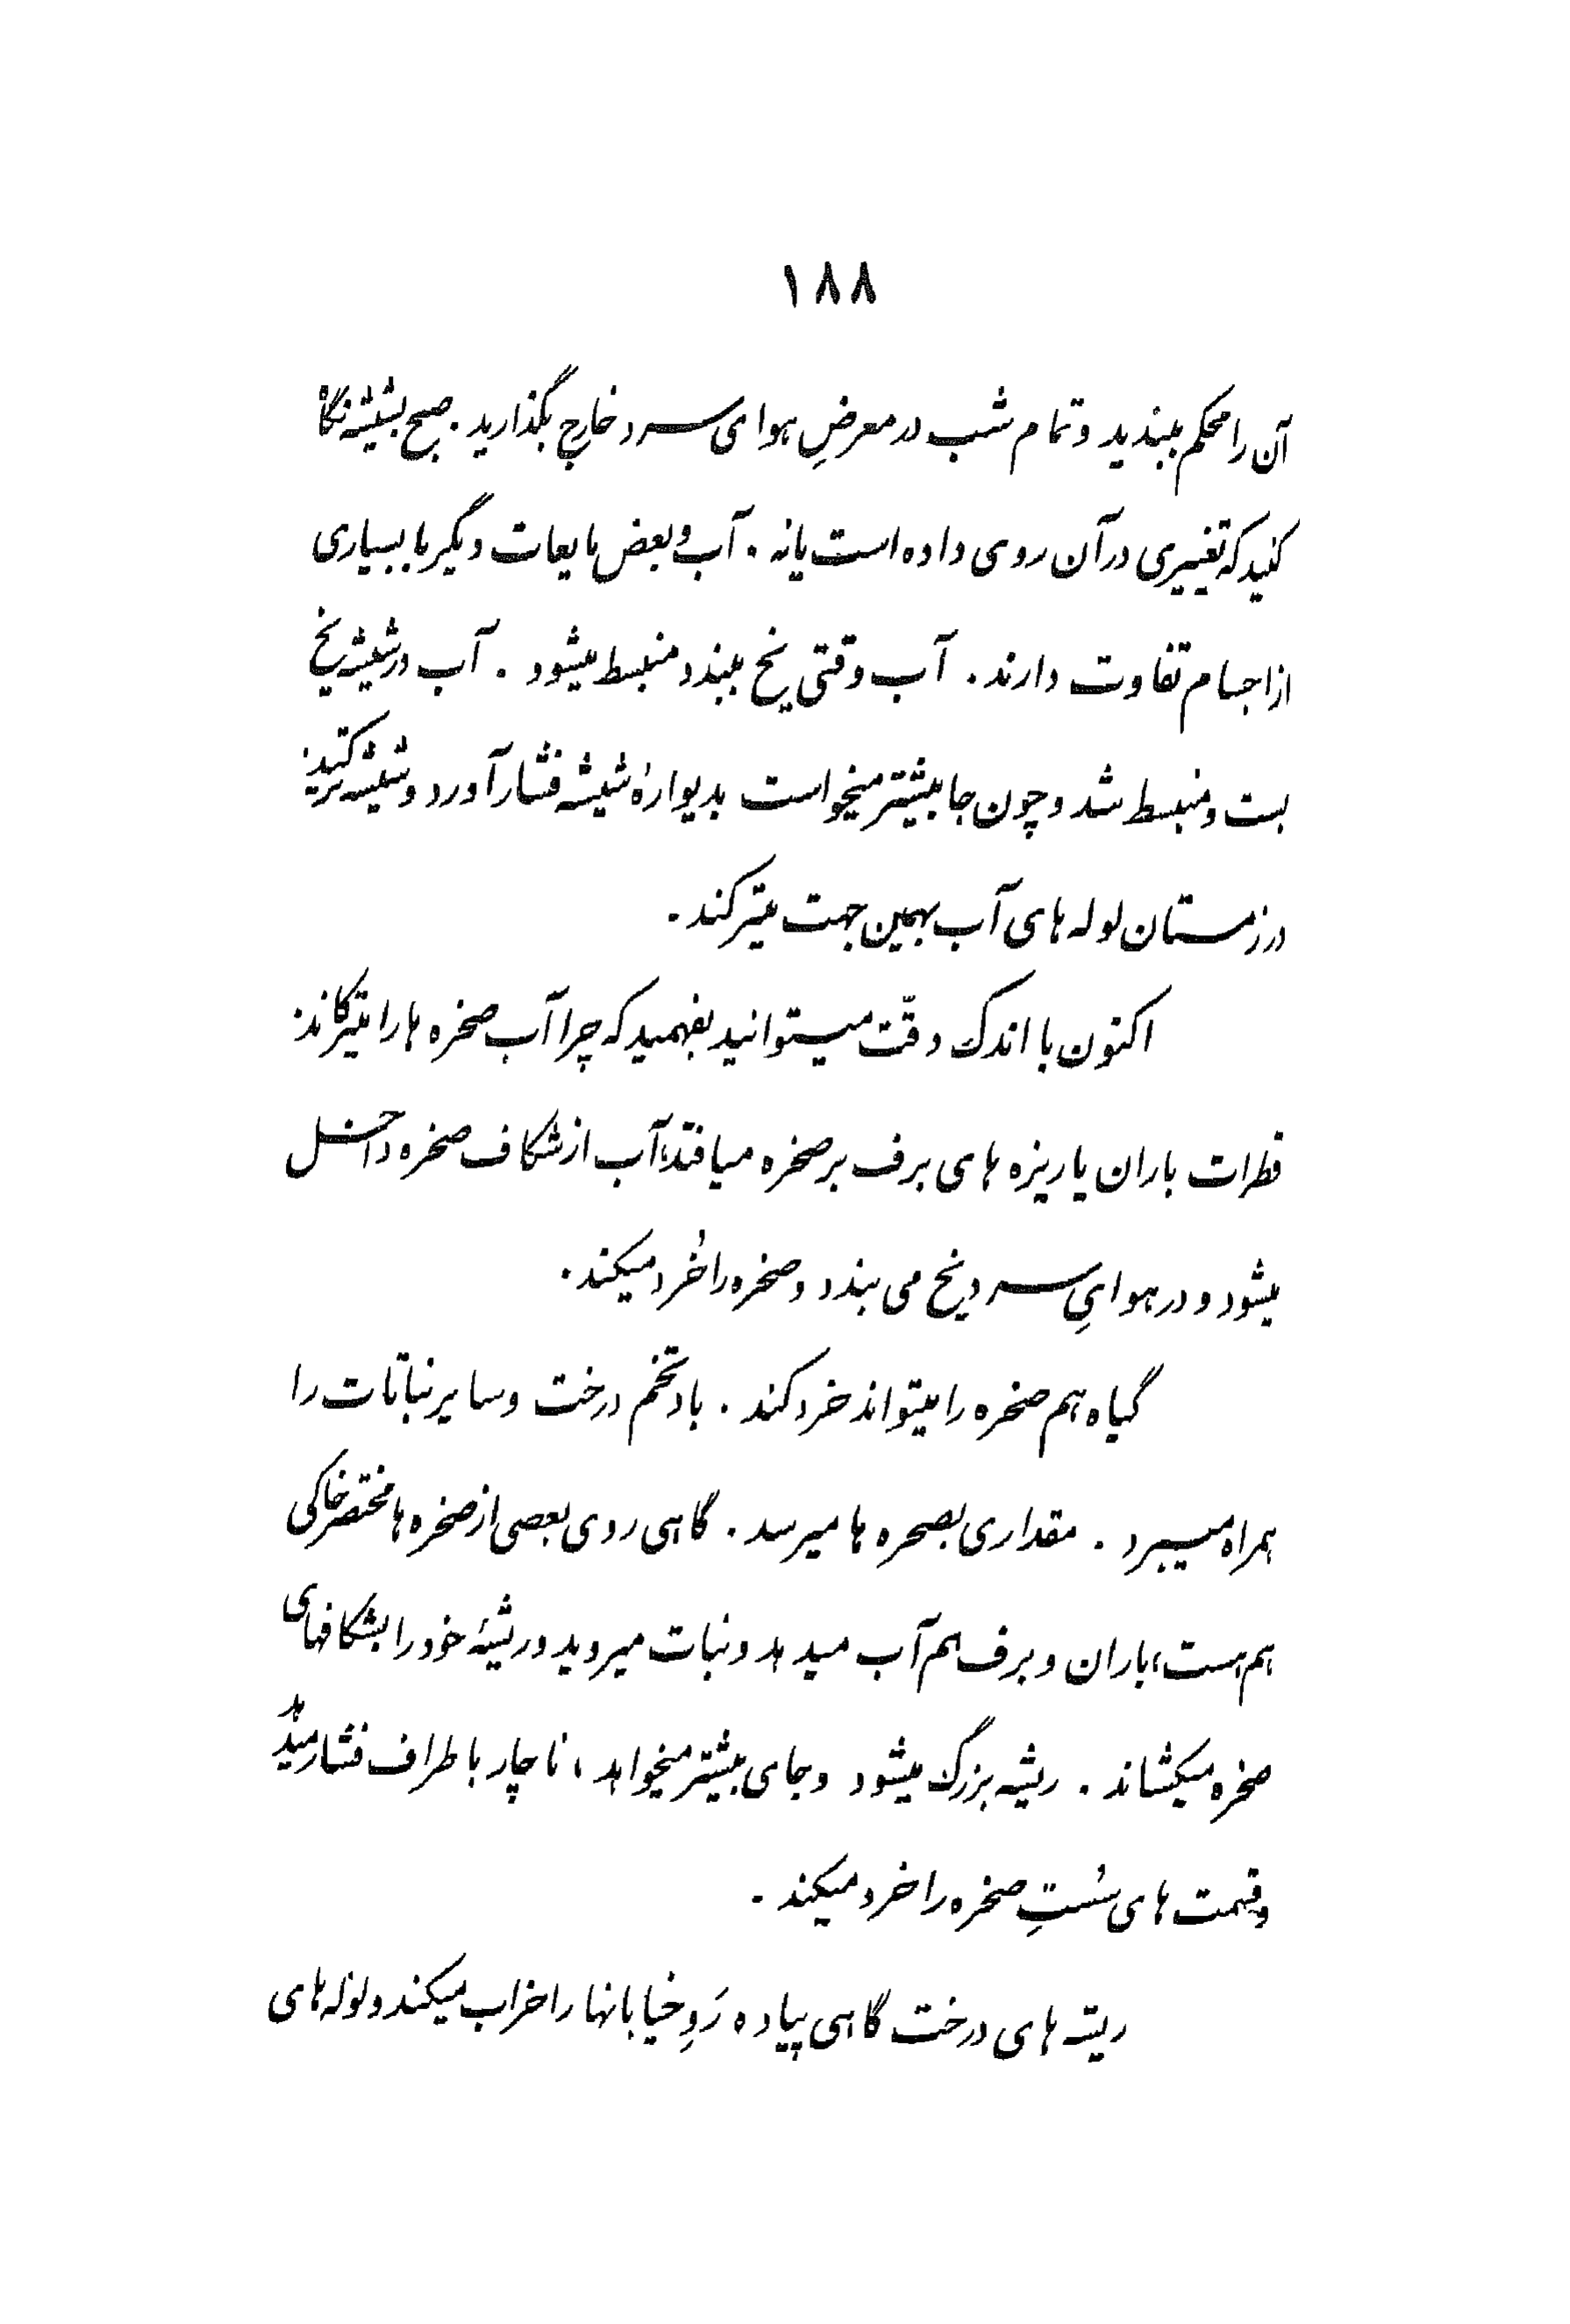 ۱۸۸
آن را محکم ببندید و تمام شب در معرضِ هوای سرد خارج بگذارید. صبح بشیشه نگاه
کنید که تغییری در آن روی داده است یا نه. آب و بعض مایعات دیگر با بسیاری
از اجسام تفاوت دارند. آب وقتی یخ ببندد منبسط میشود. آب در شیشه یخ
بست و منبسط شد و چون جا بیشتر میخواست بدیوارهٔ شیشه فشار آورد و شیشه ترکید.
در زمستان لوله های آب بهمین جهت میترکند.
اکنون با اندک دقّت میتوانید بفهمید که چرا آب صخره ها را میترکاند.
قطرات باران یا ریزه های برف بر صخره میافتد، آب از شکاف صخره داخل
میشود و در هوایِ سرد یخ می بندد و صخره را خُرد میکند.
گیاه هم صخره را میتواند خرد کند. باد تخم درخت و سایر نباتات را
همراه میبرد. مقداری بصخره ها میرسد. گاهی روی بعضی از صخره ها مختصر خاکی
هم هست، باران و برف هم آب میدهد و نبات میروید و ریشهٔ خود را بشکافهای
صخره میکشاند. ریشه بزرگ میشود و جای بیشتر میخواهد، ناچار باطراف فشار میدهد
و قسمت های سُستِ صخره را خرد میکند.
ریشه های درخت گاهی پیاده رَوِ خیابانها را خراب میکند و لوله های